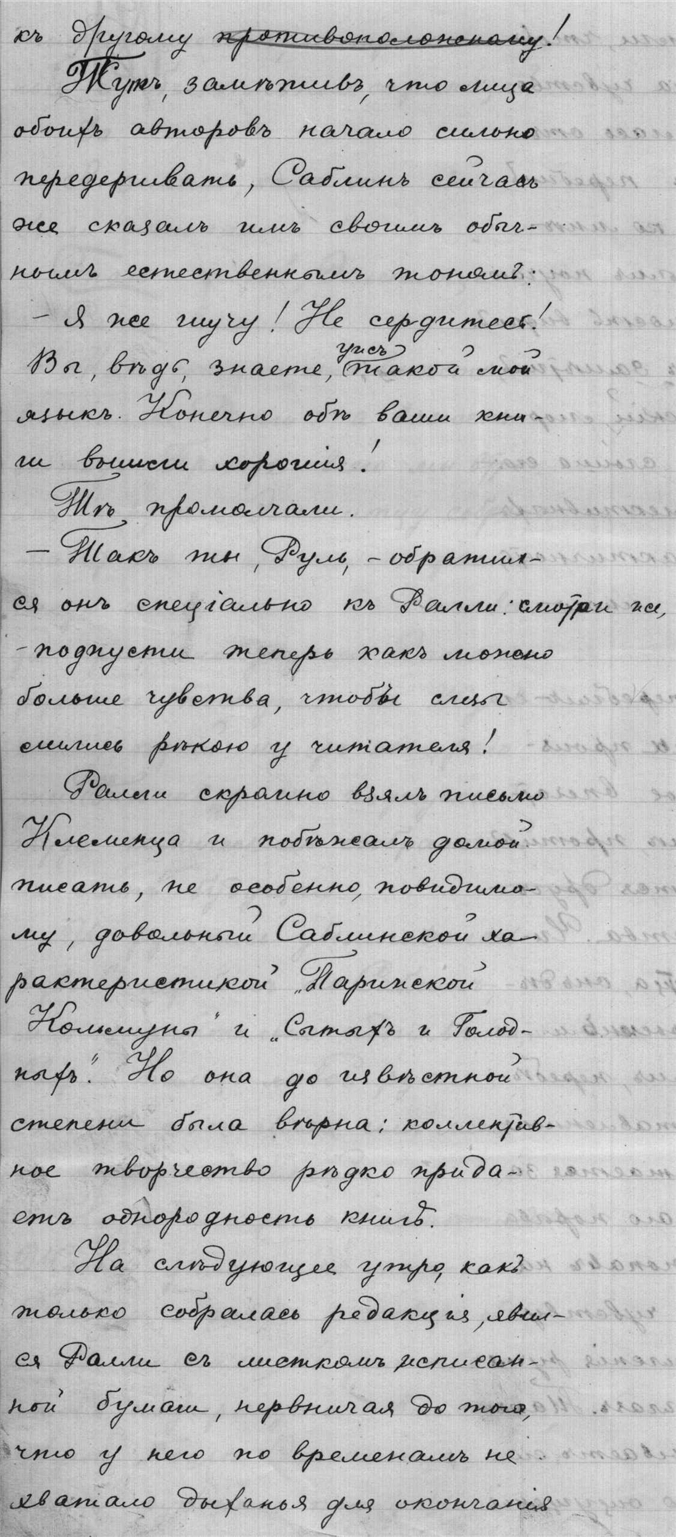 къ другому противоположному!
Тутъ, замѣтивъ, что лица
обоихъ авторовъ начало сильно
передергивать, Саблинъ сейчасъ
же сказалъ имъ своимъ обыч-
нымъ естественнымъ тономъ:
– Я же шучу! Не сердитесь!
Вы, вѣдь, знаете, ужъ такой мой
языкъ. Конечно обѣ ваши кни-
ги вышли хорошія!
Тѣ промолчали.
– Такъ ты, Руль, – обратил-
ся онъ спеціально къ Ралли: смотри же,
– подпусти теперь какъ можно
больше чувства, чтобы слезы
лились рѣкою у читателя!
Ралли скромно взялъ письмо
Клеменца и побѣжалъ домой
писать, не особенно, повидимо-
му, довольный Саблинской ха-
рактеристикой „Парижской
Коммуны" и „Сытыхъ и Голод-
ныхъ". Но она до извѣстной
степени была вѣрна: коллектив-
ное творчество рѣдко прида-
етъ однородность книгѣ.
На слѣдующее утро, какъ
только собралась редакція, явил-
ся Ралли съ листкомъ исписан-
ной бумаги, нервничая до того,
что у него по временамъ не
хватало дыханья для окончанія